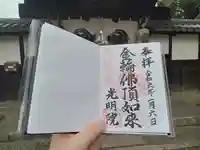 奉拝
令和六年一月六日
金輪佛頂如来
光明院